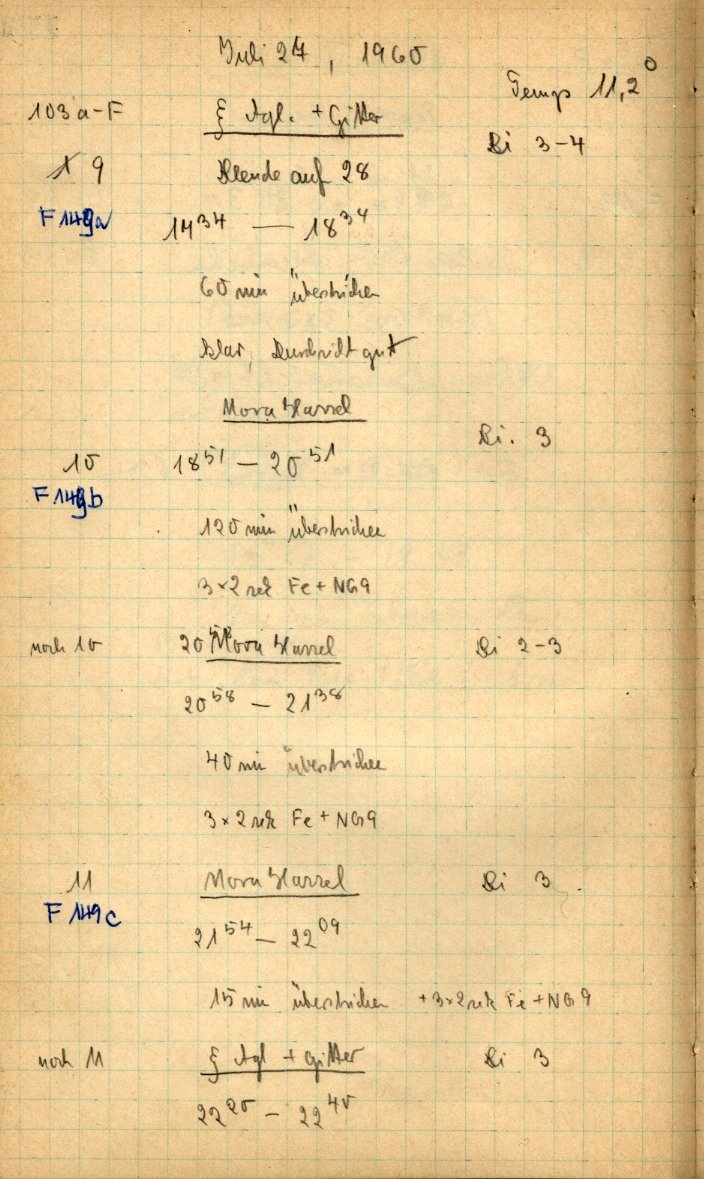 Juli 27, 1960
Temp 11,2°
103a-F ξ Aql. + Gitter
Bi 3-4
9 Blende auf 28
F149a 17³⁴ — 18³⁴
60 min überstrichen
klar, Durchsicht gut
Nova Hassel
Bi. 3
10 18⁵¹ — 20⁵¹
F149b
120 min überstrichen
3×2 sek Fe + NG9
noch 10 Nova Hassel Bi 2-3
20⁵⁸ — 21³⁸
40 min überstrichen
3×2 sek Fe + NG9
11 Nova Hassel Bi 3
F149c
21⁵⁴ — 22⁰⁹
15 min überstrichen +3×2 sek Fe + NG9
noch 11 ξ Aql + Gitter Bi 3
22²⁰ — 22⁴⁰